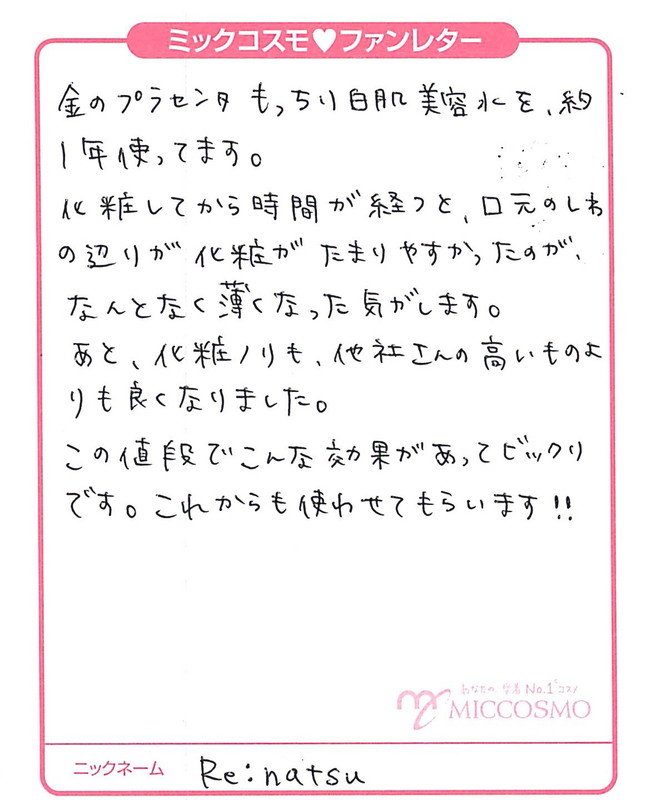 ミックコスモ♥ファンレター
金のプラセンタもっちり白肌美容水を、約
1年使ってます。
化粧してから時間が経つと、口元のしわ
の辺りが化粧がたまりやすかったのが、
なんとなく薄くなった気がします。
あと、化粧ノリも、他社さんの高いものよ
りも良くなりました。
この値段でこんな効果があってビックリ
です。これからも使わせてもらいます!!
あなたの、愛着No.1コスメ
MICCOSMO
ニックネーム Re:natsu